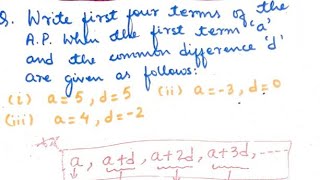 Q. Write first four terms of the
A.P. When the first term 'a'
and the common difference 'd'
are given as follows:
(i) a=5, d=5 (ii) a=-3, d=0
(iii) a=4, d=-2
a, a+d, a+2d, a+3d, -----